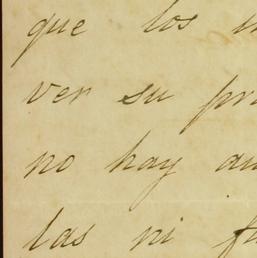 que los
ver su
no hay
las ni